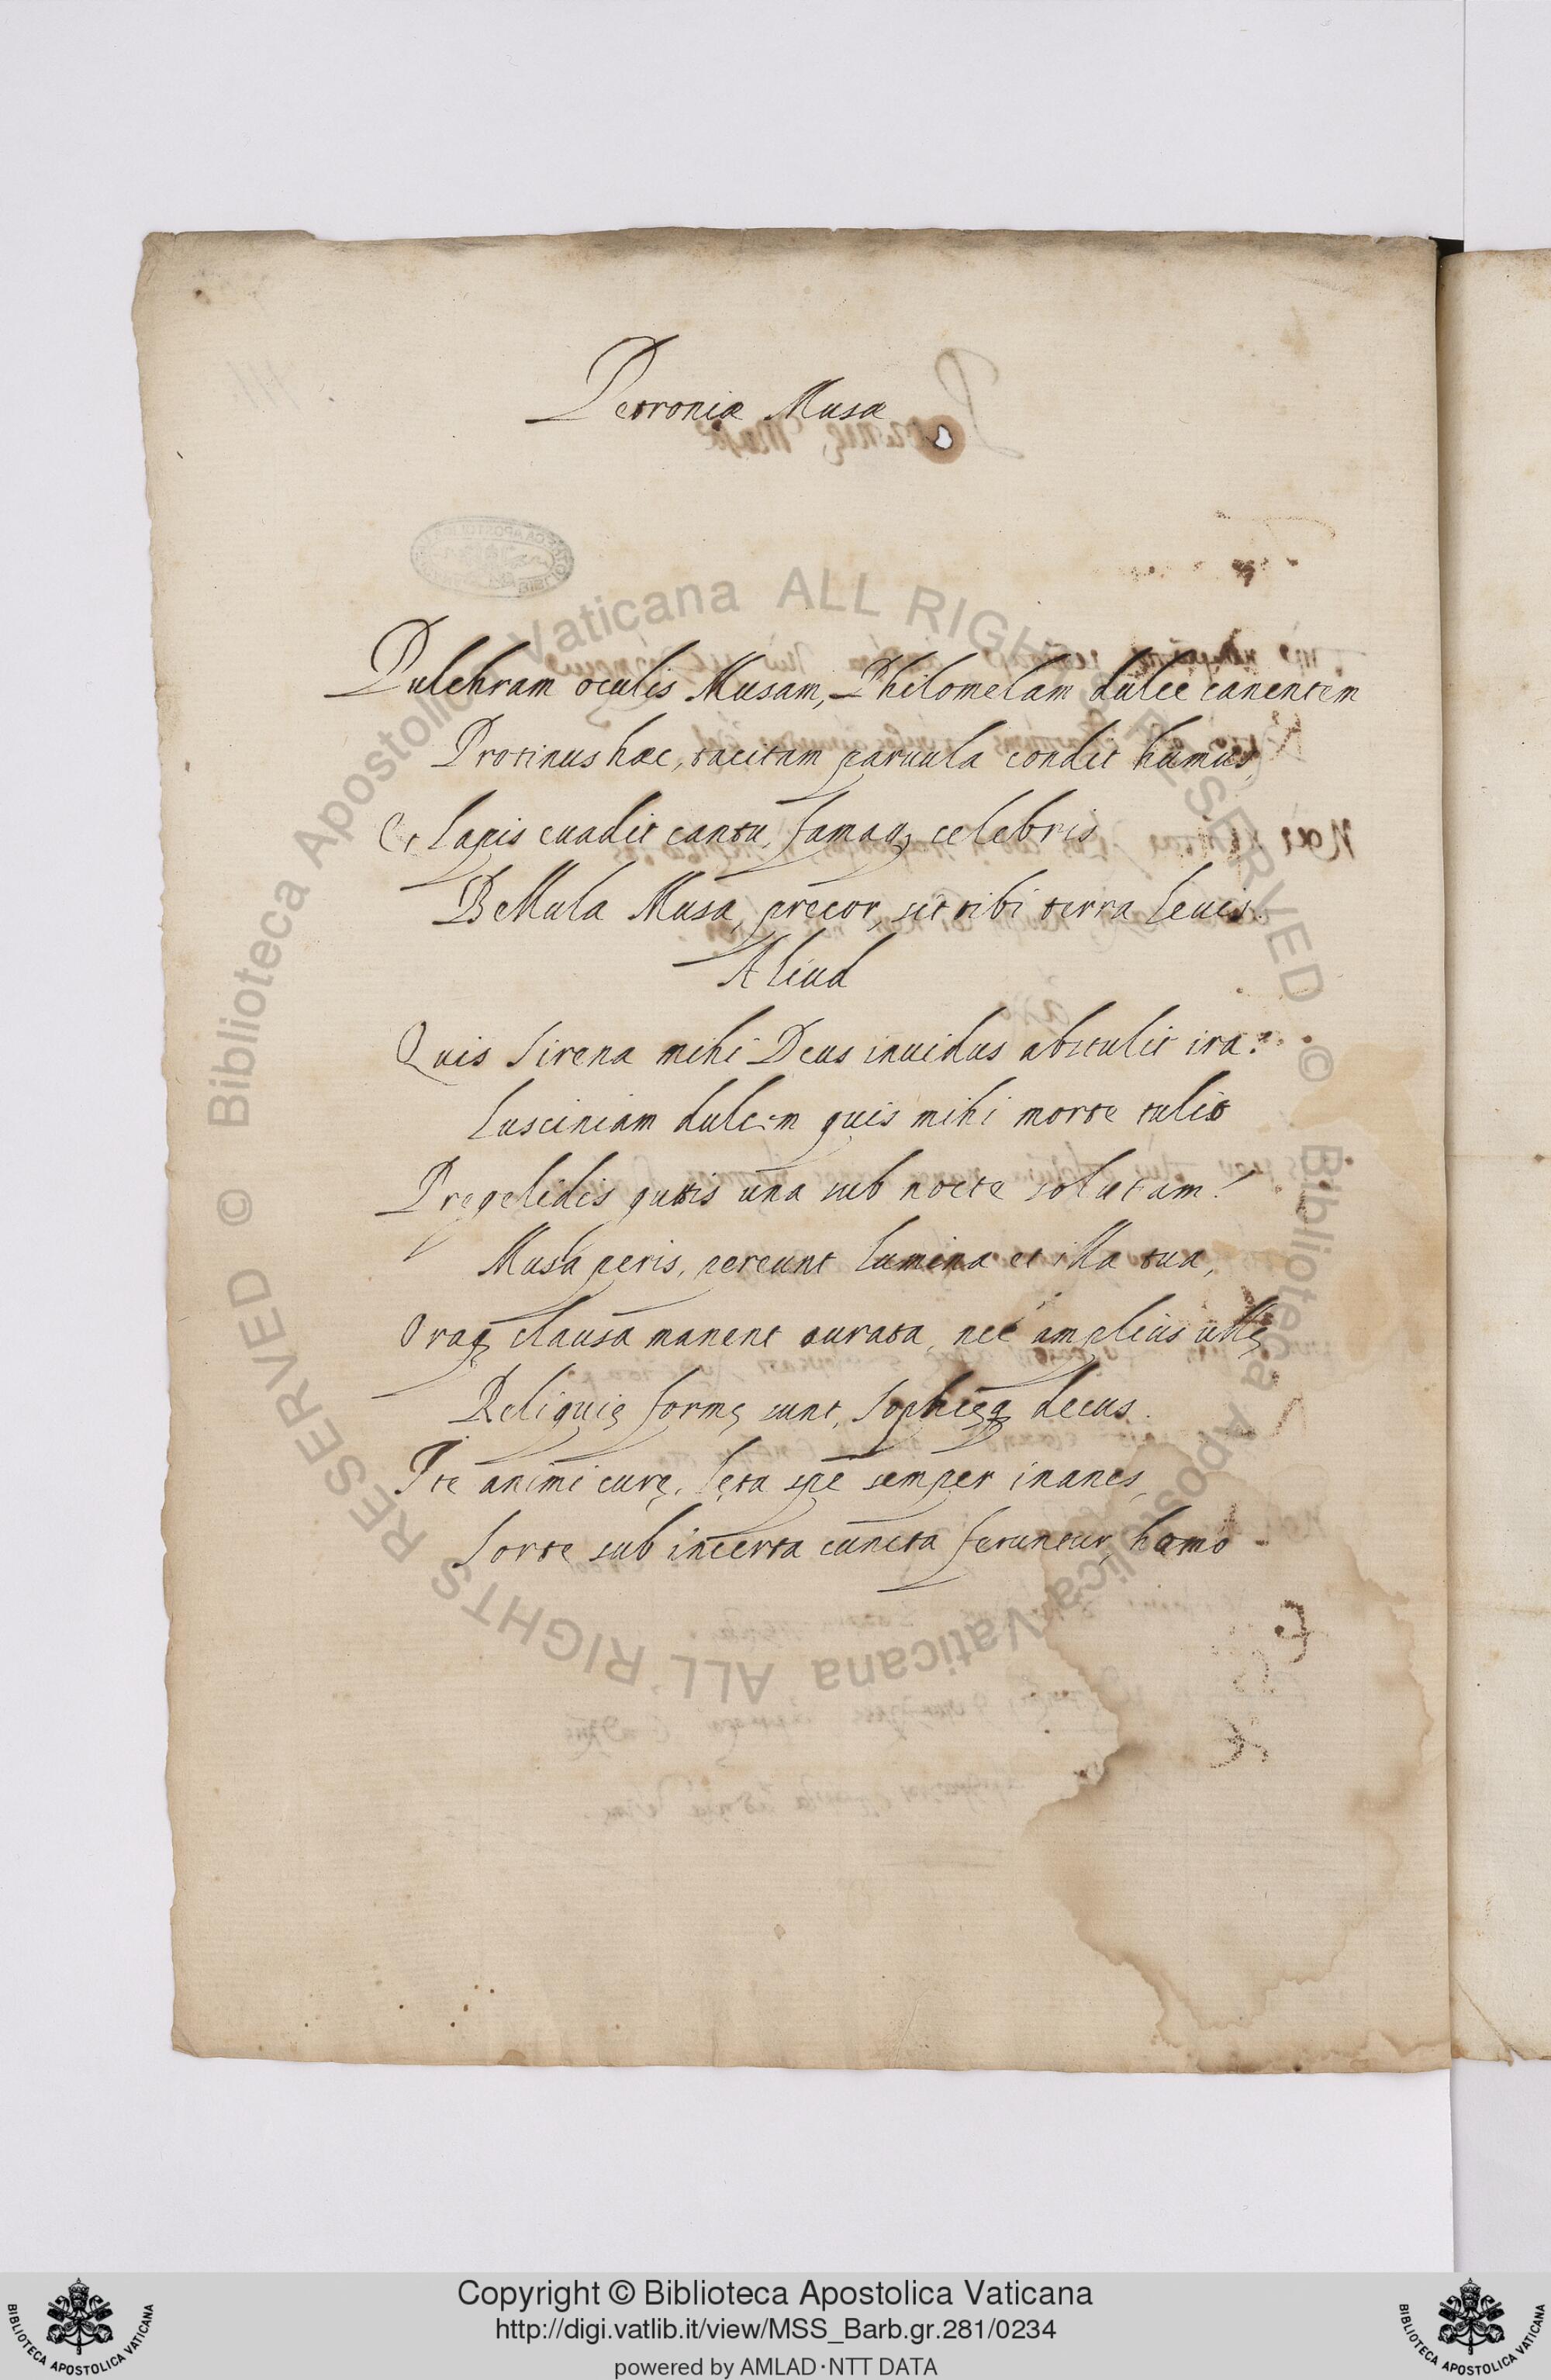 Petroniæ Musæ
Pulchram oculis Musam, Philomelam dulce canentem
Protinus hæc, tacitam paruula condit humus,
Et lapis euadit cantu, famaq; celebris
Bellula Musa, precor, sit tibi terra leuis.
Aliud
Quis Sirena mihi Deus inuidus abstulit ira?
Lusciniam dulcem quis mihi morte tulit
Pręgelidis guttis una sub nocte solutam?
Musa peris, pereunt lumina et illa tua,
Oraq; clausa manent aurata, nec amplius ullę
Reliquię formę sunt, Sophięq; decus.
Ite animi curę, lęta spe semper inanes,
Sorte sub incerta cuncta feruntur, homo
Biblioteca Apostolica Vaticana ALL RIGHTS RESERVED ©
Biblioteca Apostolica Vaticana ALL RIGHTS RESERVED ©
Copyright © Biblioteca Apostolica Vaticana
http://digi.vatlib.it/view/MSS_Barb.gr.281/0234
powered by AMLAD·NTT DATA
BIBLIOTECA APOSTOLICA VATICANA
BIBLIOTECA APOSTOLICA VATICANA